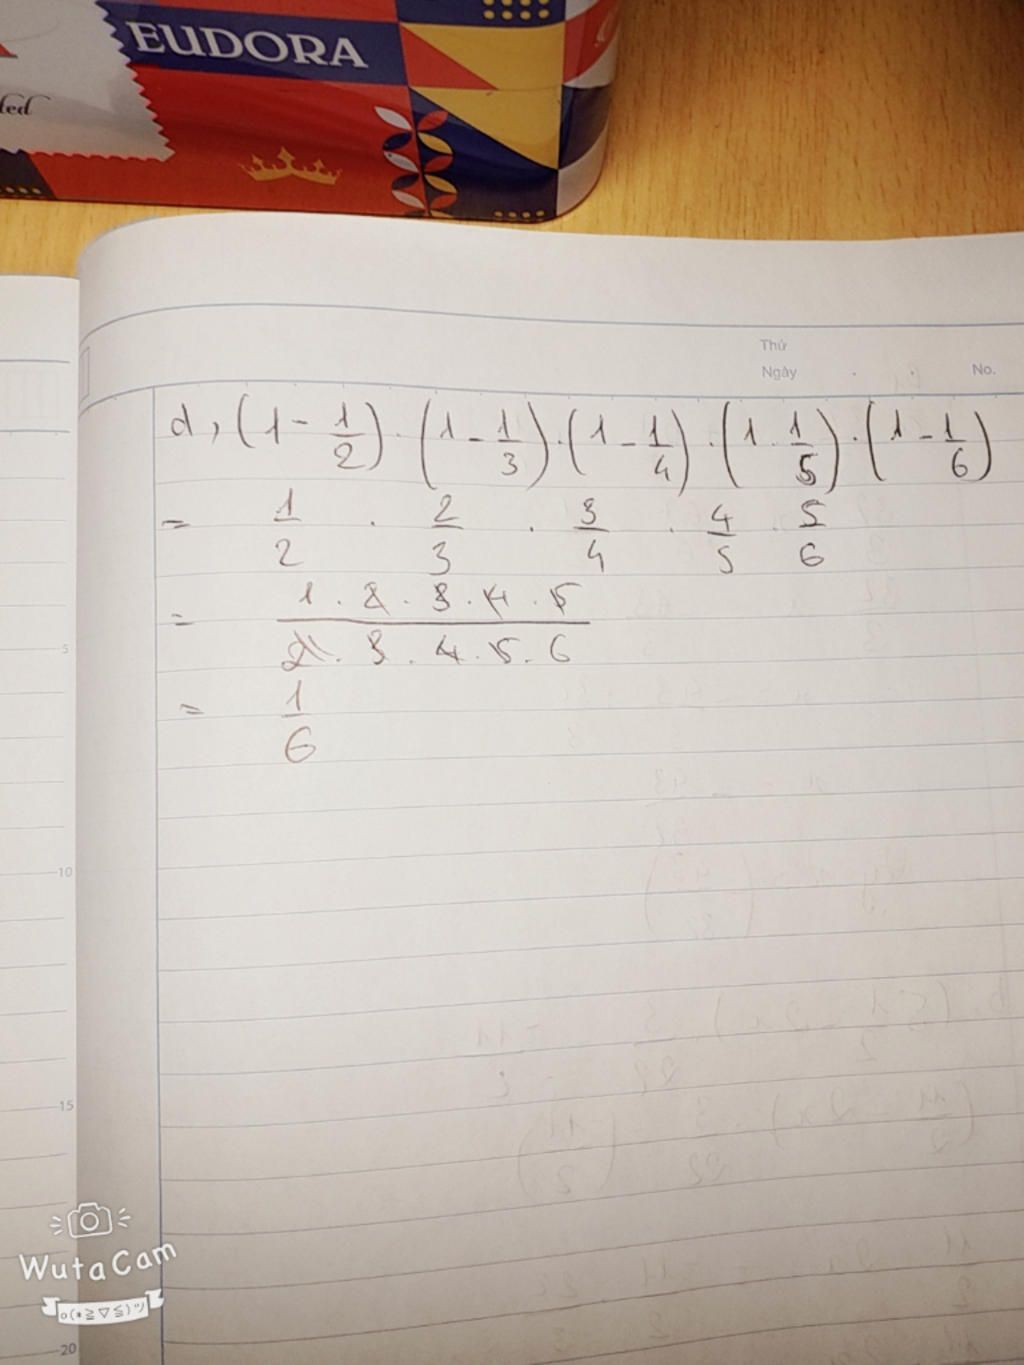 EUDORA
ted
Thứ
Ngày
No.
d, (1 - 1/2) . (1 - 1/3) . (1 - 1/4) . (1 - 1/5) . (1 - 1/6)
= 1/2 . 2/3 . 3/4 . 4/5 . 5/6
= 1 . 2 . 3 . 4 . 5 / 2 . 3 . 4 . 5 . 6
= 1/6
5
10
15
20
WutaCam
o(*≧▽≦)ツ